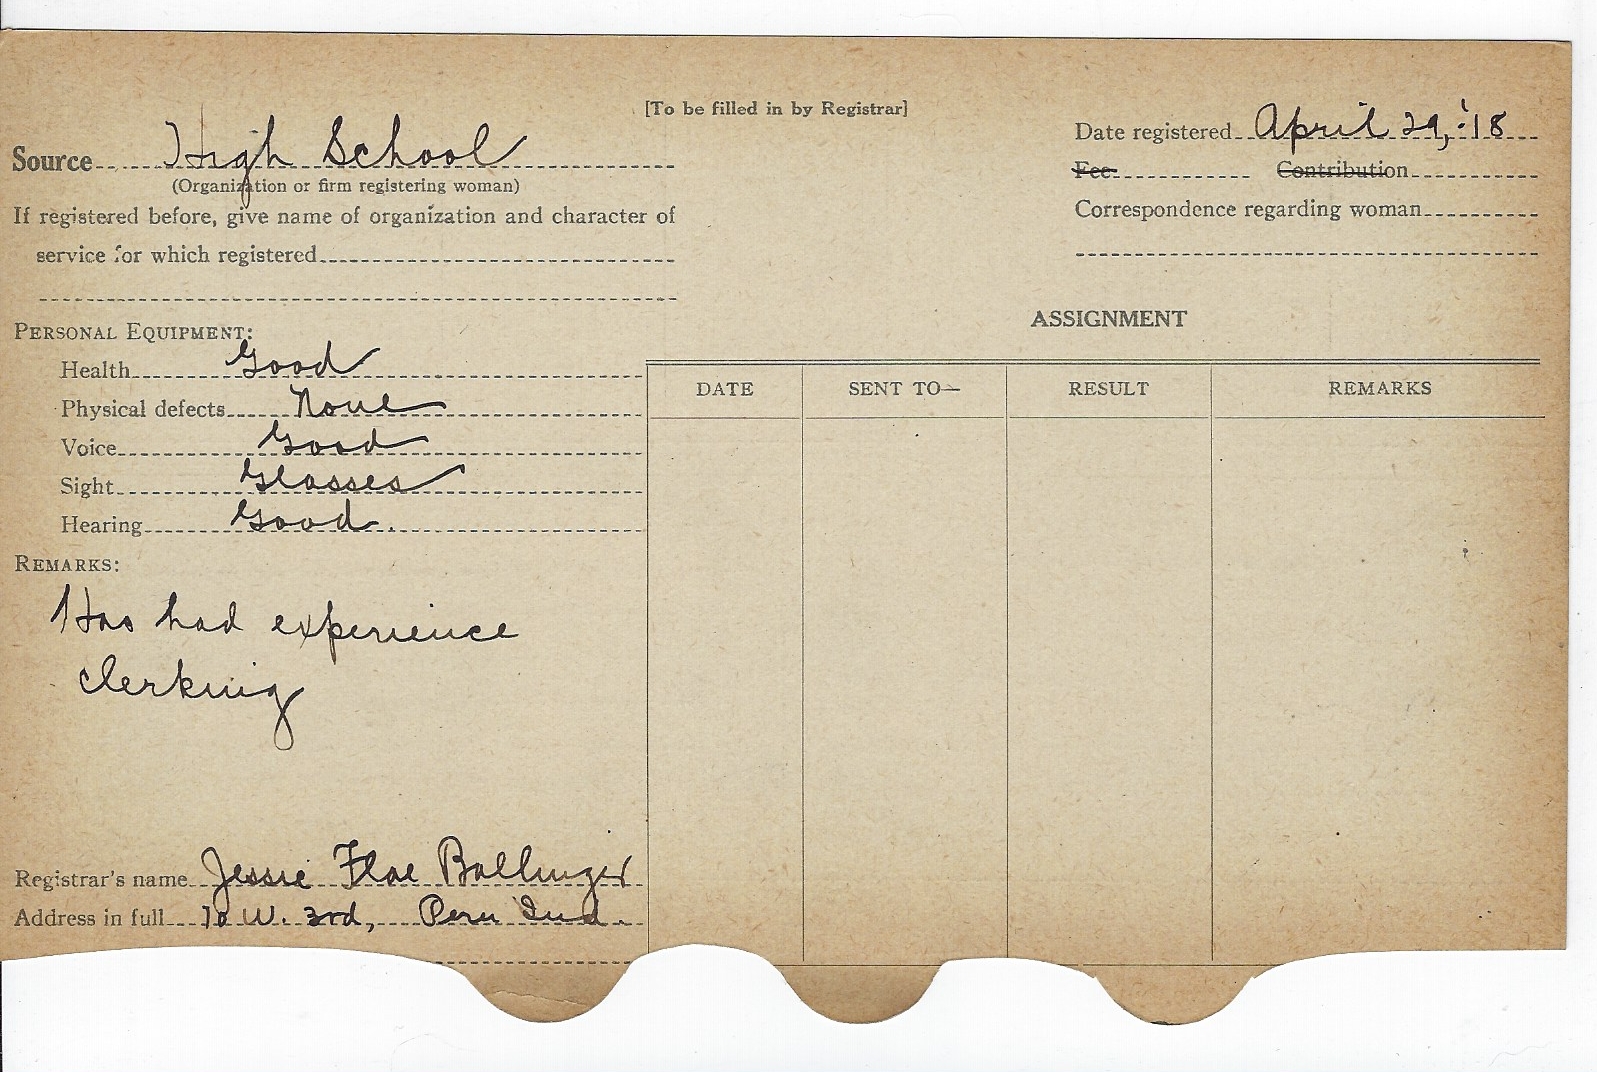 [To be filled in by Registrar]
Source High School
(Organization or firm registering woman)
If registered before, give name of organization and character of
service for which registered
Date registered April 29, '18
Fee Contribution
Correspondence regarding woman
PERSONAL EQUIPMENT:
Health Good
Physical defects None
Voice Good
Sight Glasses
Hearing Good.
REMARKS:
Has had experience
clerking
Registrar's name Jessie Floe Bollinger
Address in full 70 W. 3rd, Peru Ind.
ASSIGNMENT
DATE SENT TO— RESULT REMARKS